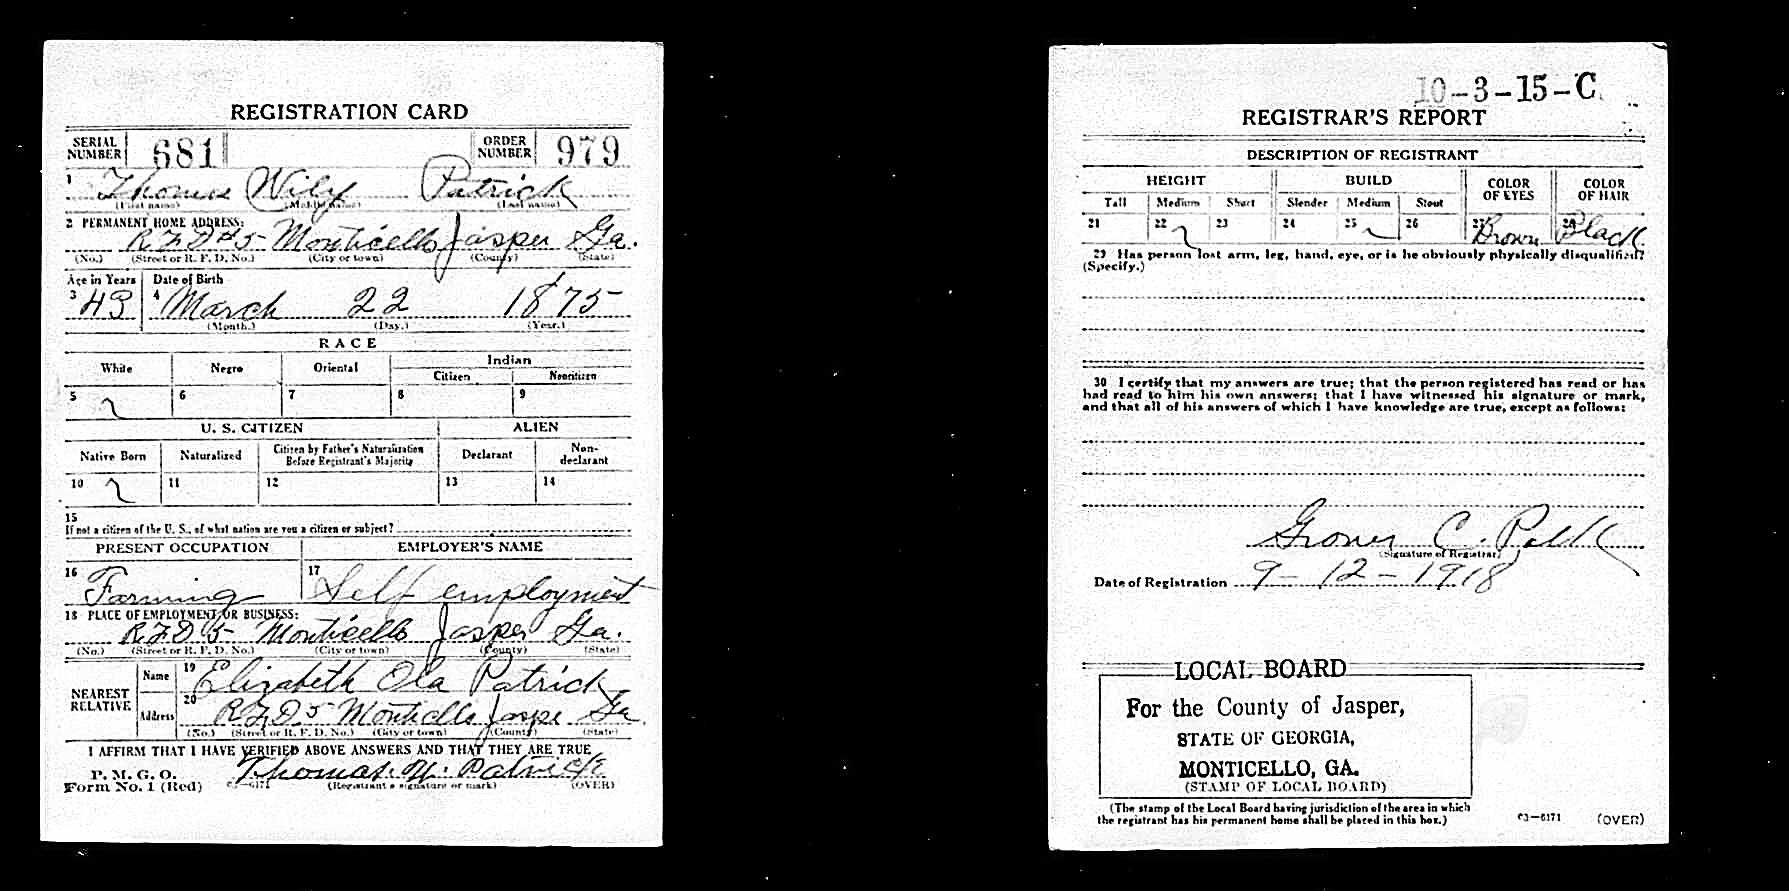 REGISTRATION CARD
SERIAL NUMBER 681 ORDER NUMBER 979
1 Thomas Wily Patrick
(First name) (Middle name) (Last name)
2 PERMANENT HOME ADDRESS:
R.F.D # 5 Monticello Jasper Ga.
(No.) (Street or R. F. D. No.) (City or town) (County) (State)
Age in Years Date of Birth
3 43 4 March 22 1875
(Month.) (Day.) (Year.)
RACE
White Negro Oriental Indian
Citizen Noncitizen
5 6 7 8 9
U. S. CITIZEN ALIEN
Native Born Naturalized Citizen by Father's Naturalization Before Registrant's Majority Declarant Non-declarant
10 11 12 13 14
15
If not a citizen of the U. S., of what nation are you a citizen or subject?
PRESENT OCCUPATION EMPLOYER'S NAME
16 Farming 17 Self employment
18 PLACE OF EMPLOYMENT OR BUSINESS:
R.F.D 5 Monticello Jasper Ga.
(No.) (Street or R. F. D. No.) (City or town) (County) (State)
NEAREST RELATIVE Name 19 Elizabeth Ola Patrick
Address 20 R.F.D 5 Monticello Jaspe Ga
(No.) (Street or R. F. D. No.) (City or town) (County) (State)
I AFFIRM THAT I HAVE VERIFIED ABOVE ANSWERS AND THAT THEY ARE TRUE
P. M. G. O.
Form No. 1 (Red) Thomas. W. Patrick
03—6171 (Registrant's signature or mark) (OVER)
10-3-15-C.
REGISTRAR'S REPORT
DESCRIPTION OF REGISTRANT
HEIGHT BUILD COLOR OF EYES COLOR OF HAIR
Tall Medium Short Slender Medium Stout
21 22 23 24 25 26 27 Brown 28 Black
29 Has person lost arm, leg, hand, eye, or is he obviously physically disqualified?
(Specify.)
30 I certify that my answers are true; that the person registered has read or has
had read to him his own answers; that I have witnessed his signature or mark,
and that all of his answers of which I have knowledge are true, except as follows:
Grover C. Polk
(Signature of Registrar)
Date of Registration 9-12-1918
LOCAL BOARD
For the County of Jasper,
STATE OF GEORGIA,
MONTICELLO, GA.
(STAMP OF LOCAL BOARD)
(The stamp of the Local Board having jurisdiction of the area in which
the registrant has his permanent home shall be placed in this box.)
03—6171 (OVER)